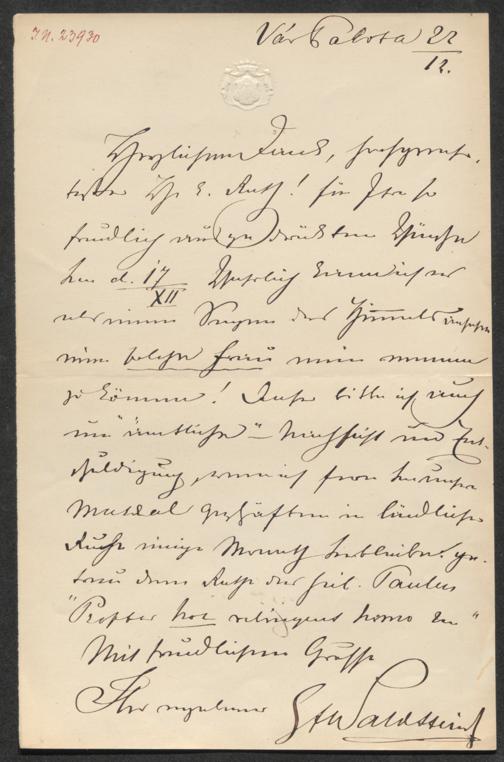 I.N. 23930
Vár Palota 22/12.
Herzlichsten Dank, hochgeehr-
tester Hr k. Rath! für Ihre so
freundlich ausgedrückten Wünsche
den d. 17/XII
als einen Segen des Himmels ansehen
eine solche Frau mein nennen
zu können! Daher bitte ich auch
um "amtliche" Nachsicht und Ent-
schuldigung, wenn ich fern von
Geschäften in ländlicher
Ruhe einige Monath verbleibe. ge-
treu dem Rathe des heil. Paulus
"Propter hoc relinquet homo
Mit freundlichem Grusse
Ihr ergebener GfWaldstein